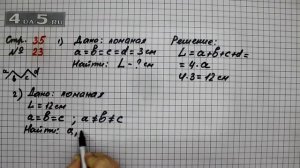 4 ДА 5 .РУ
Стр. 35
№ 23
1) Дано: ломаная
a=b=c=d=3см
Найти: L-? см
Решение:
L=a+b+c+d=
=4·a
4·3=12см
2) Дано: ломаная
L=12см
a=b=c ; a≠b≠c
Найти: a,